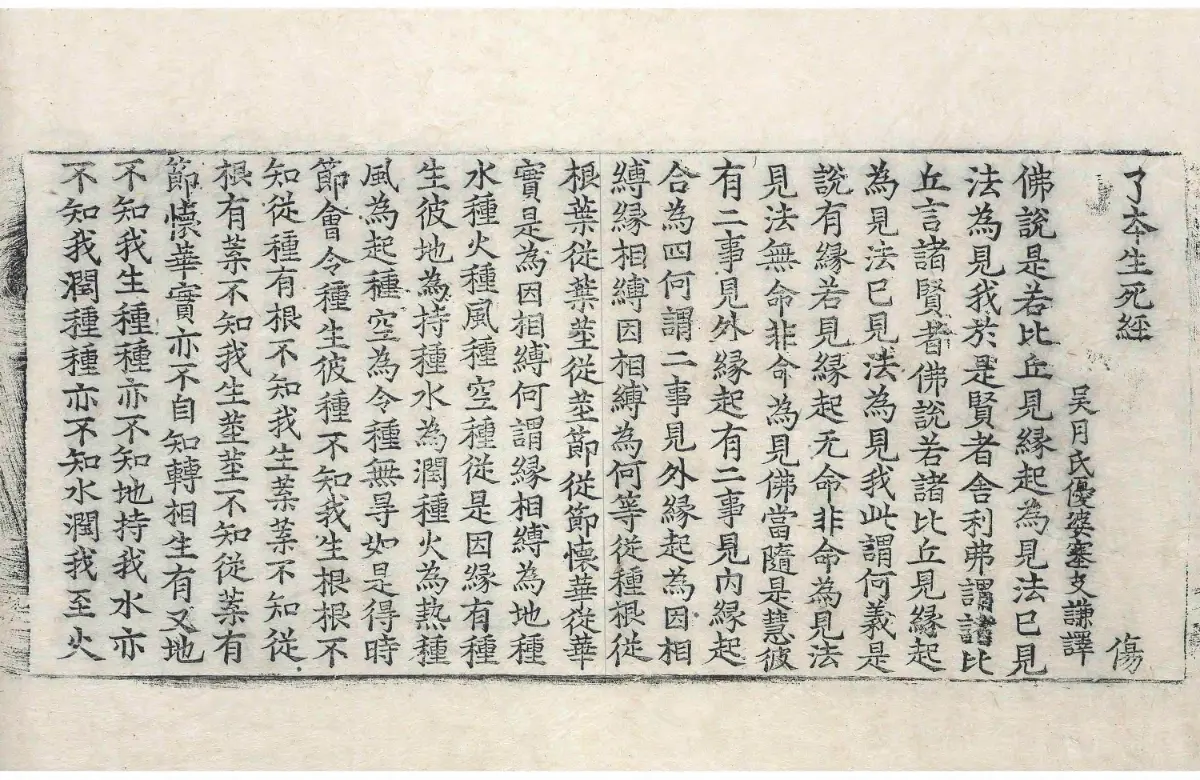 了夲生死經 傷
吴月氏優婆塞支謙譯
佛說是若比丘見縁起為見法已見
法為見我扵是賢者舎利弗謂諸比
丘言諸賢者佛說若諸比丘見縁起
為見法已見法為見我此謂何義是
說有縁若見縁起无命非命為見法
見法無命非命為見佛當隨是慧彼
有二事見外縁起有二事見內縁起
合為四何謂二事見外縁起為因相
縛縁相縛因相縛為何等從種根從
根葉從葉莖從莖節從節懷華從華
實是為因相縛何謂縁相縛為地種
水種火種風種空種從是因縁有種
生彼地為持種水為潤種火為熱種
風為起種空為令種無㝵如是得時
節會令種生彼種不知我生根根不
知從種有根不知我生葉葉不知從
根有葉不知我生莖莖不知從葉有
節懷華實亦不自知轉相生有又地
不知我生種種亦不知地持我水亦
不知我潤種種亦不知水潤我至火